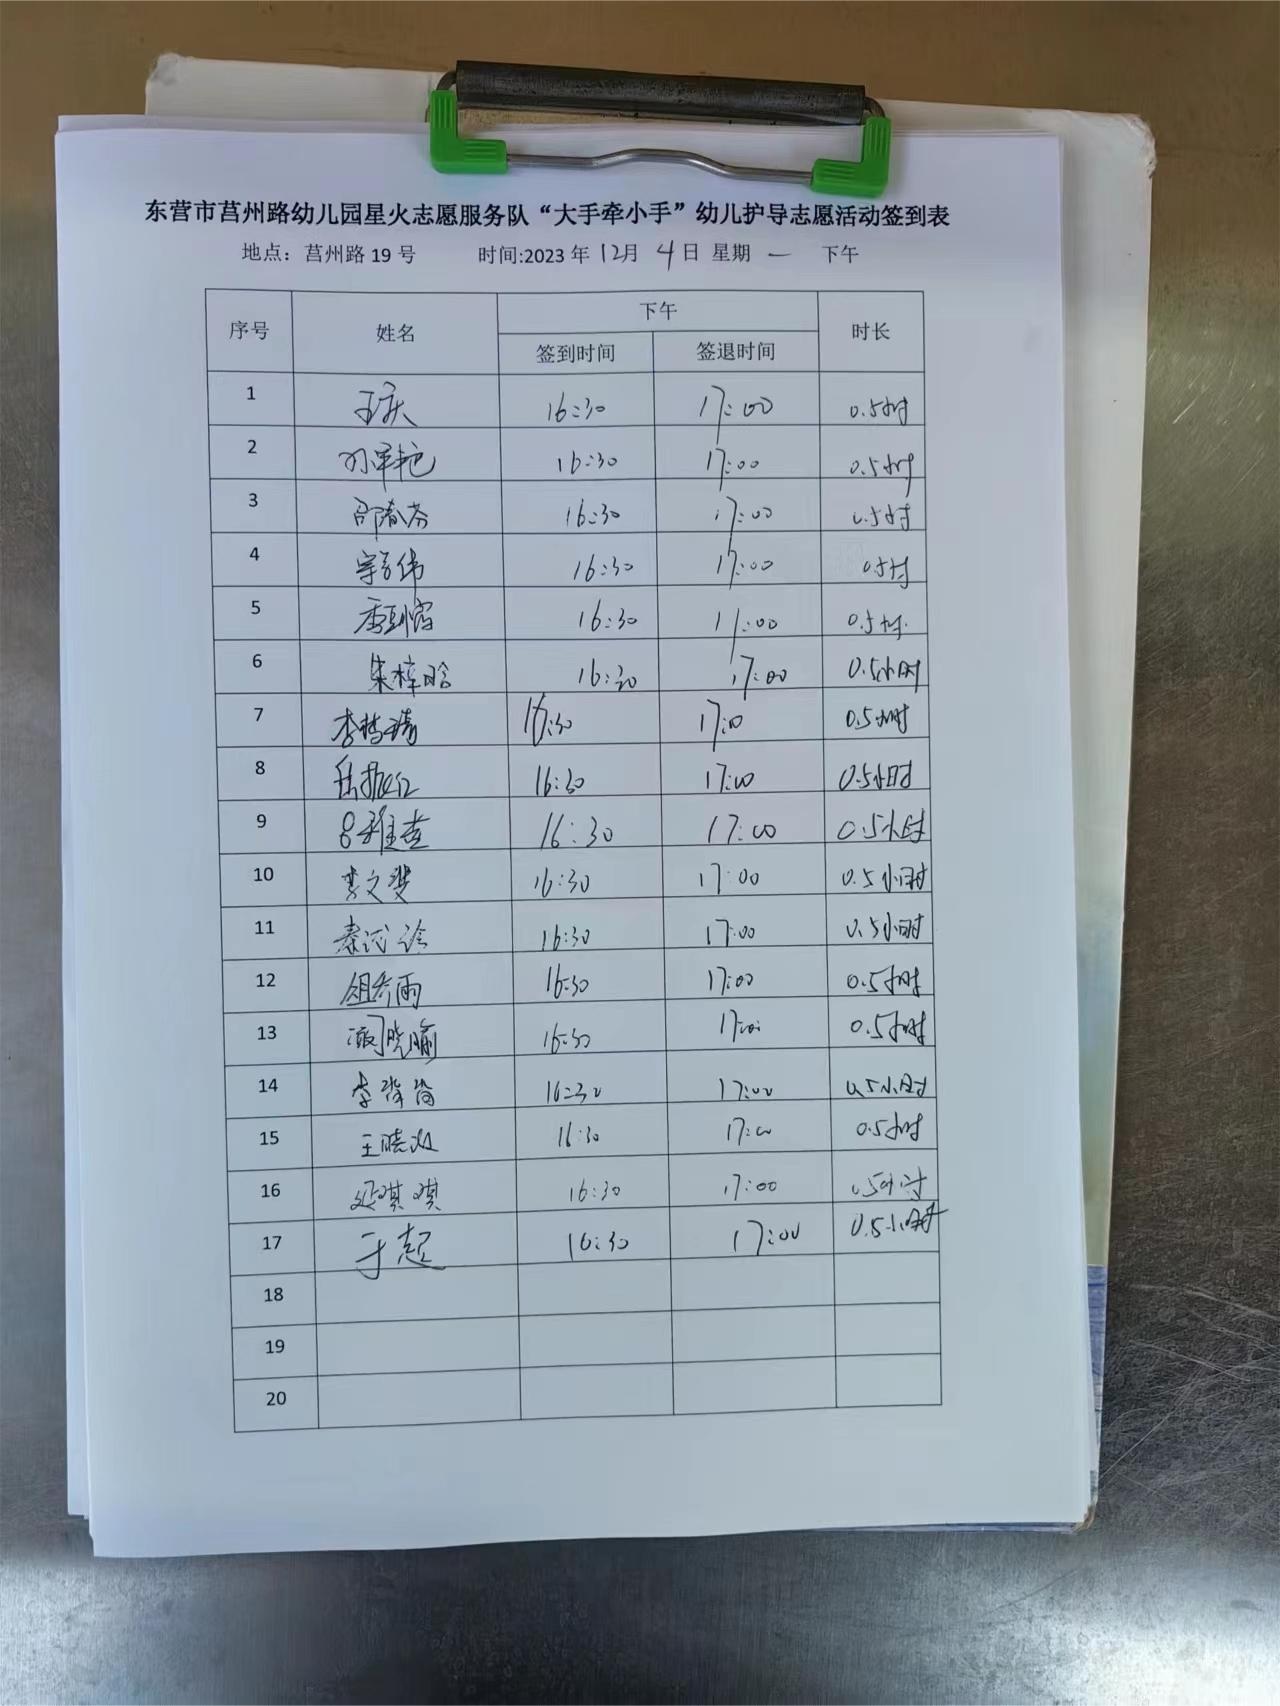 东营市莒州路幼儿园星火志愿服务队“大手牵小手”幼儿护导志愿活动签到表
地点：莒州路 19 号 时间:2023 年 12月 4日 星期 一 下午
序号 姓名 下午 时长
签到时间 签退时间
1 王庆 16:30 17:00 0.5小时
2 16:30 17:00 0.5小时
3 邵春芬 16:30 17:00 0.5小时
4 16:30 17:00 0.5时
5 16:30 17:00 0.5时
6 朱梓晗 16:30 17:00 0.5小时
7 16:30 17:00 0.5小时
8 16:30 17:00 0.5小时
9 16:30 17:00 0.5小时
10 李文斐 16:30 17:00 0.5小时
11 16:30 17:00 0.5小时
12 16:30 17:00 0.5小时
13 16:30 17:00 0.5小时
14 16:30 17:00 0.5小时
15 16:30 17:00 0.5小时
16 16:30 17:00 0.5小时
17 于超 16:30 17:00 0.5小时
18
19
20